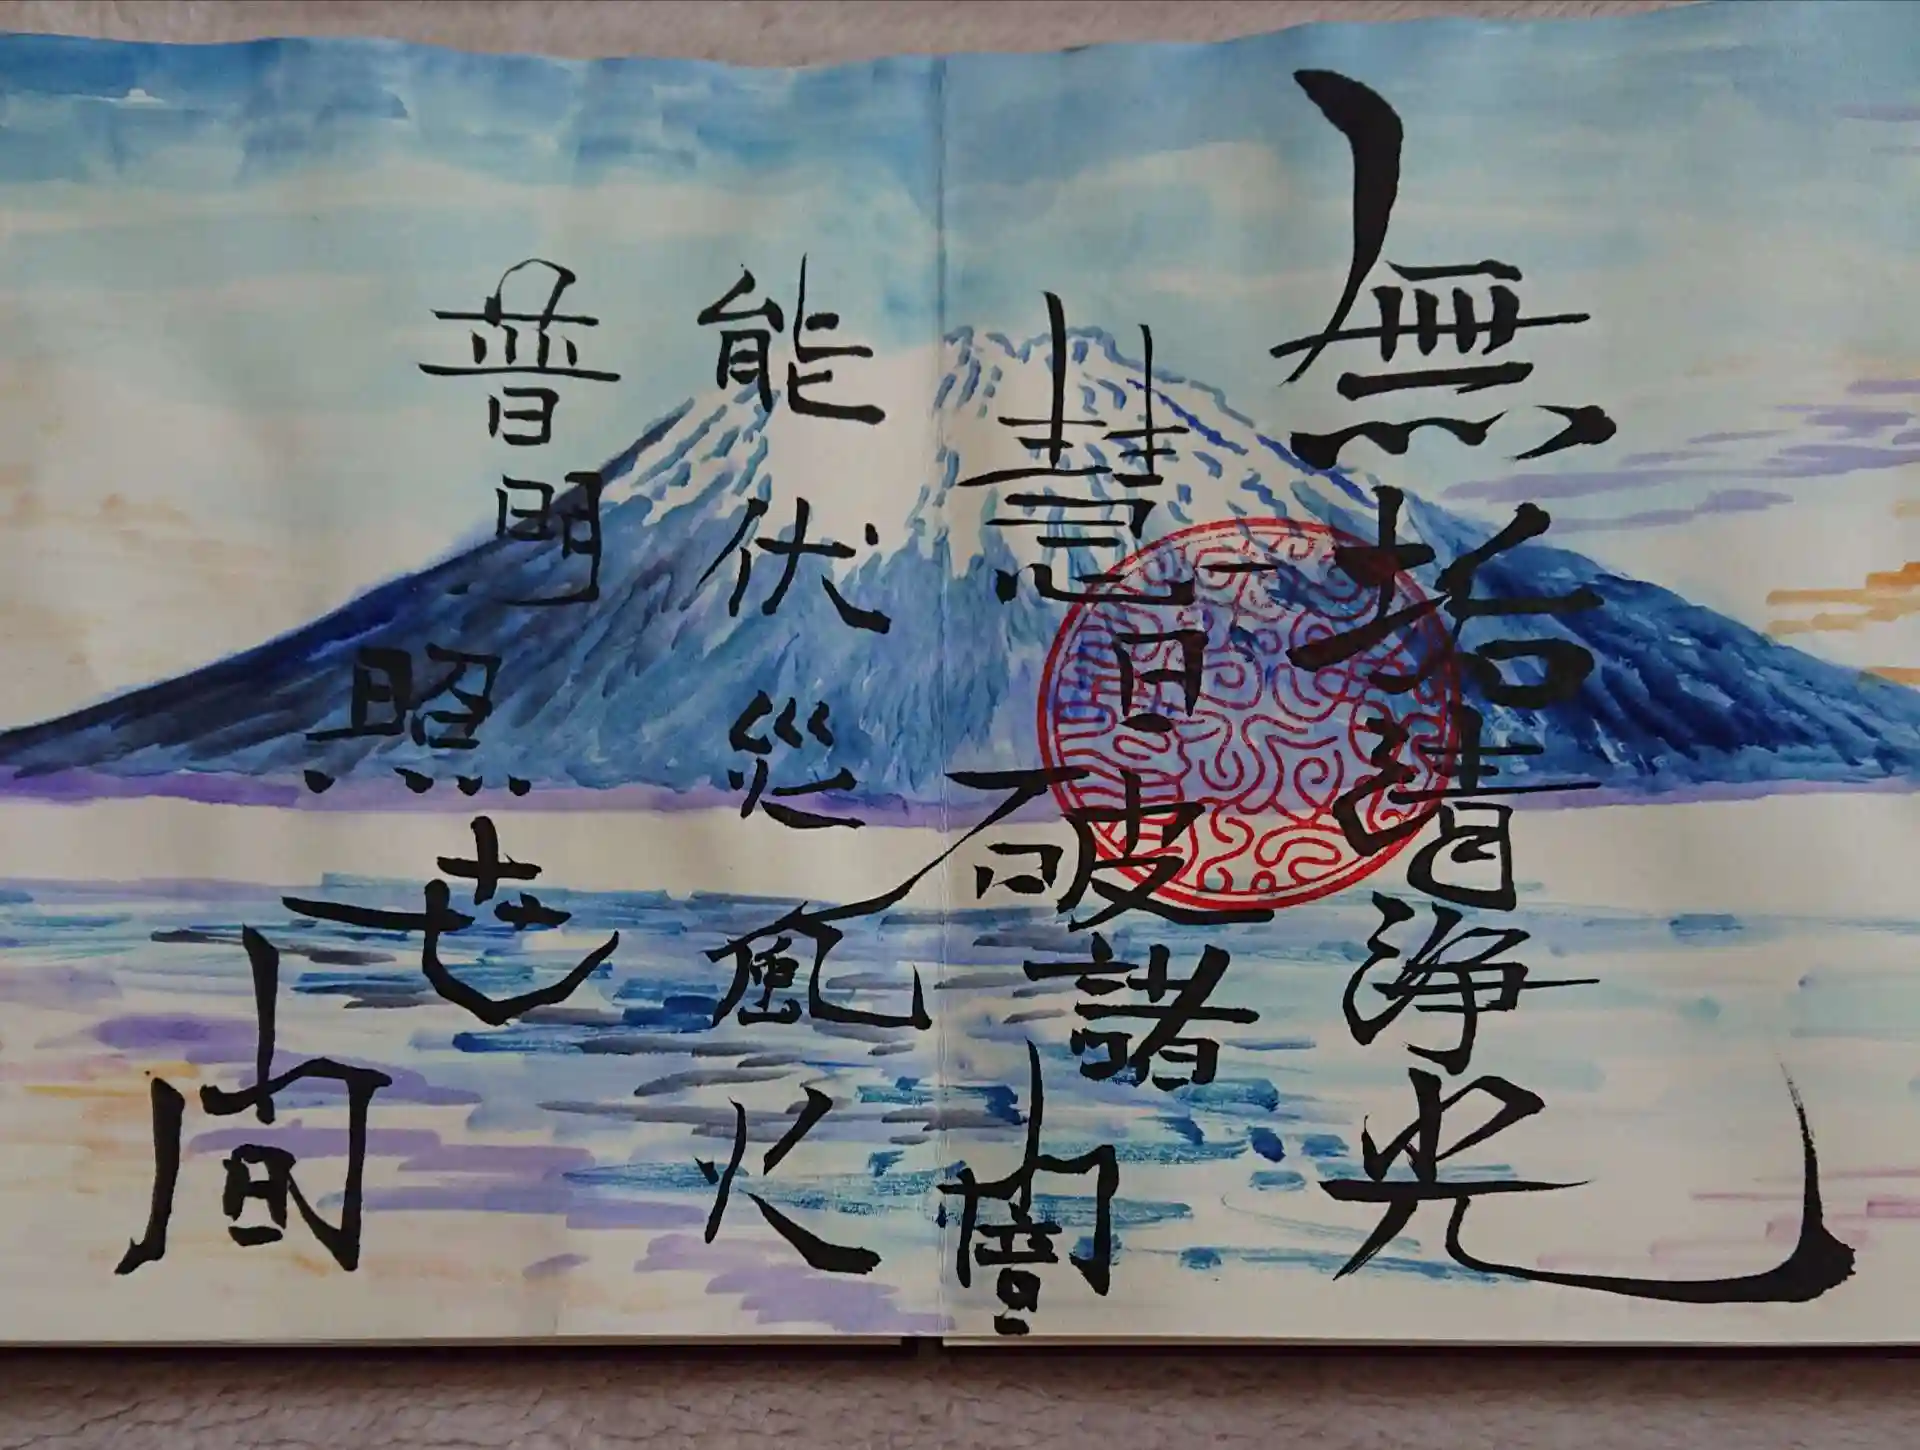 無垢清浄光
慧日破諸闇
能伏災風火
普明照世間